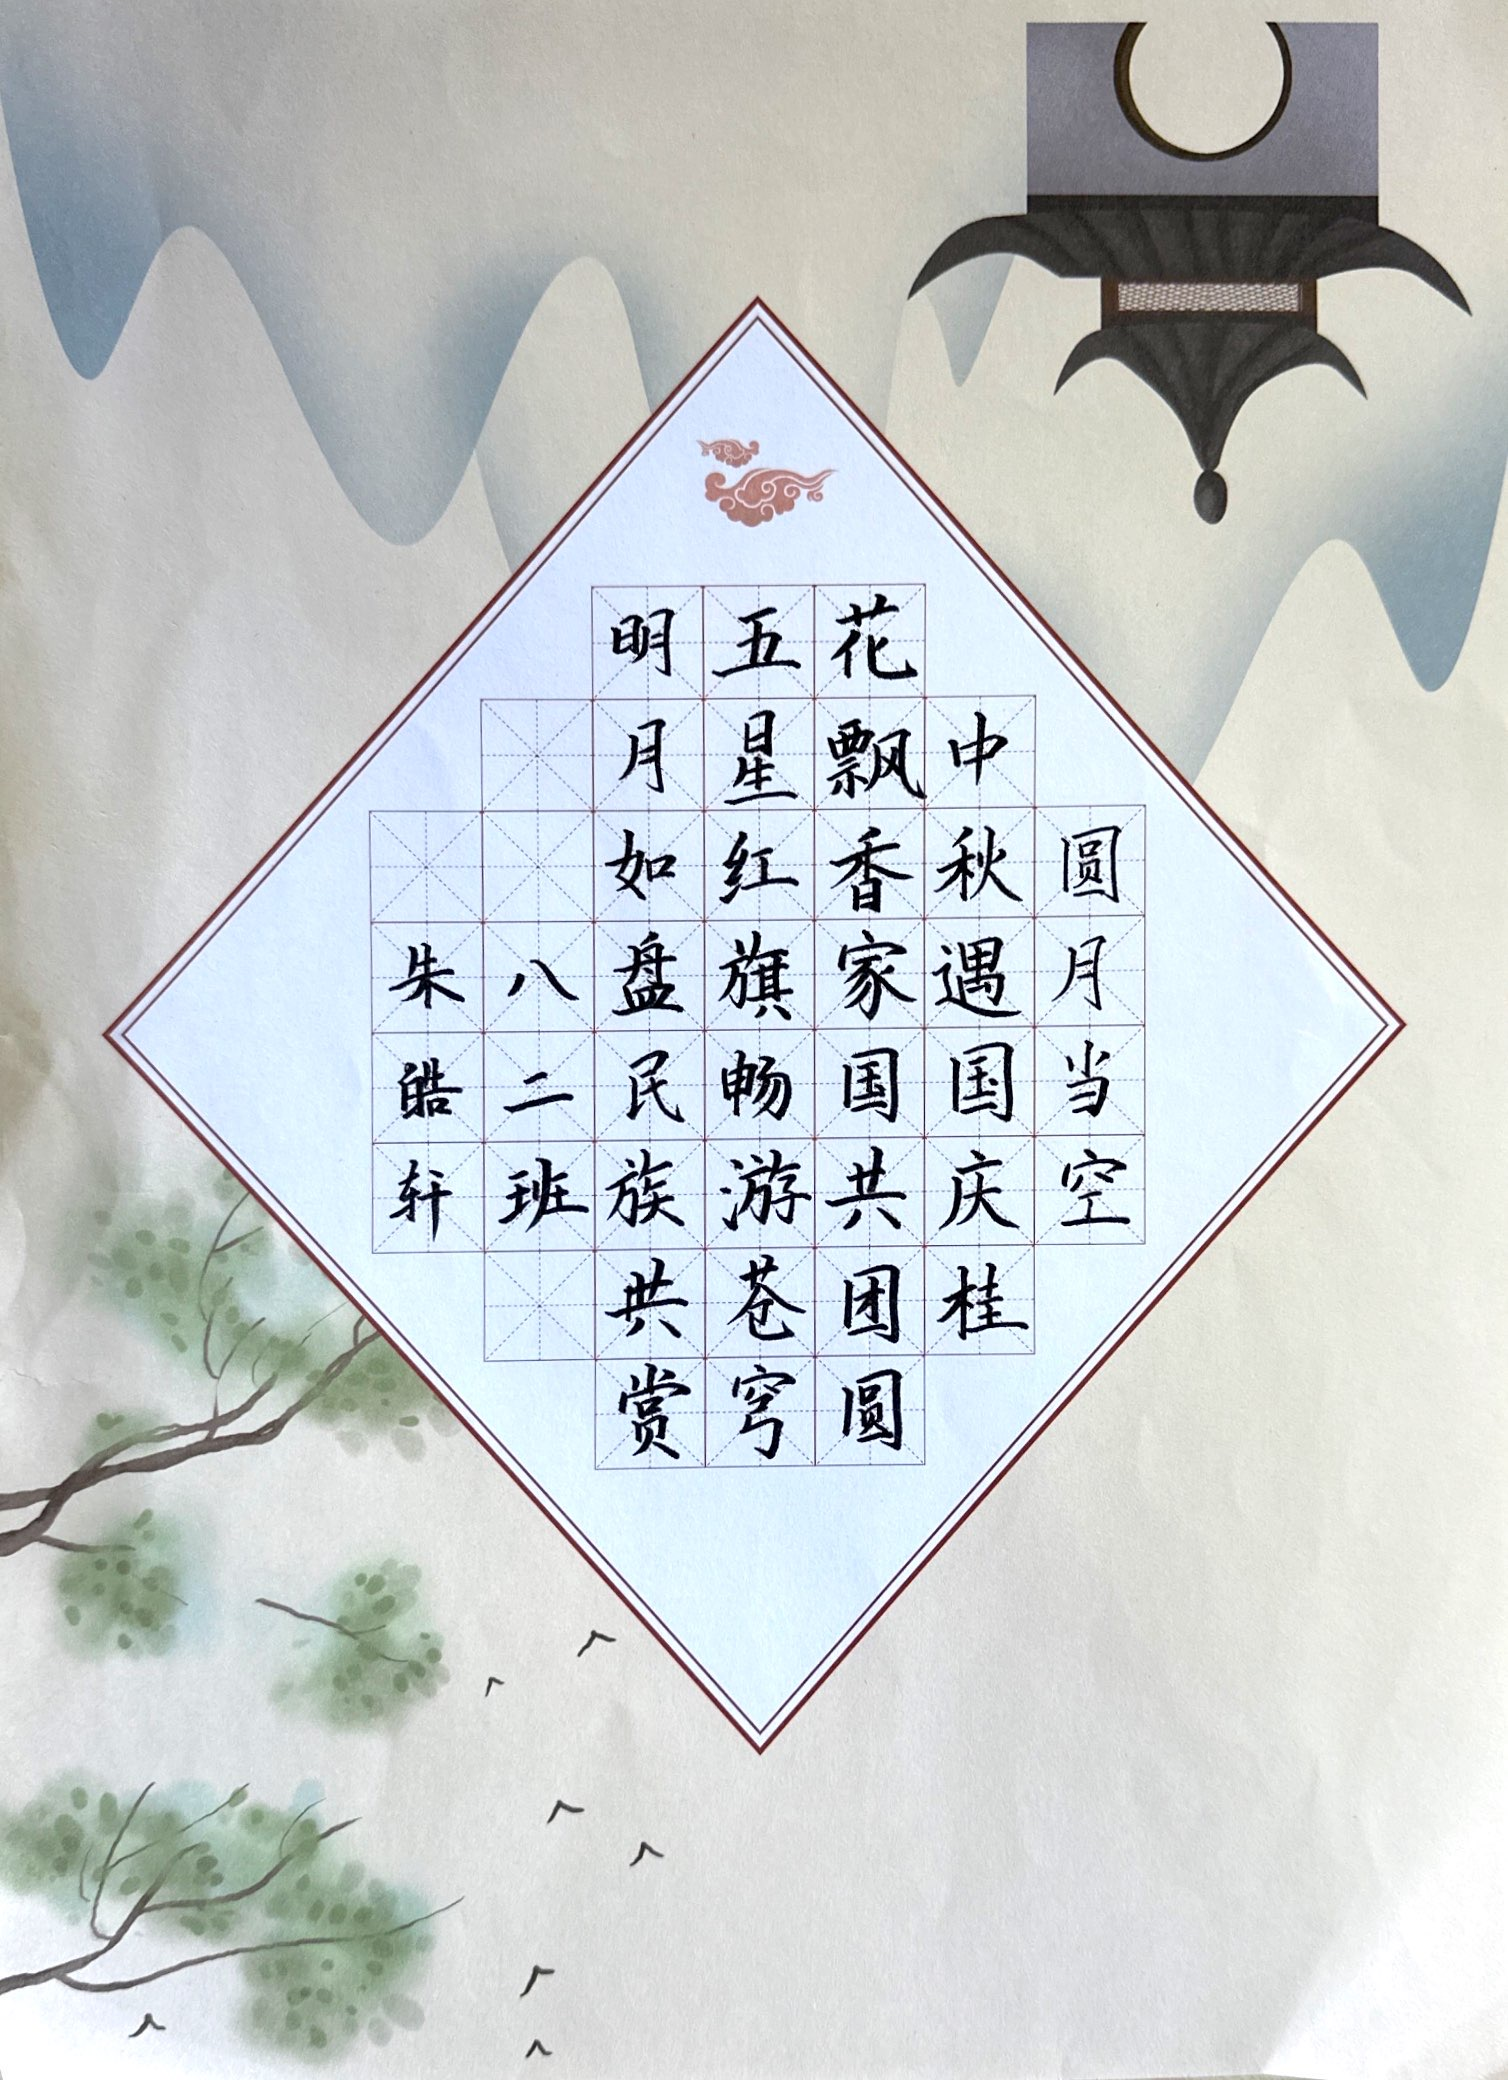 圆月当空
中秋遇国庆桂
花飘香家国共团圆
五星红旗畅游苍穹
明月如盘民族共赏
八二班
朱皓轩